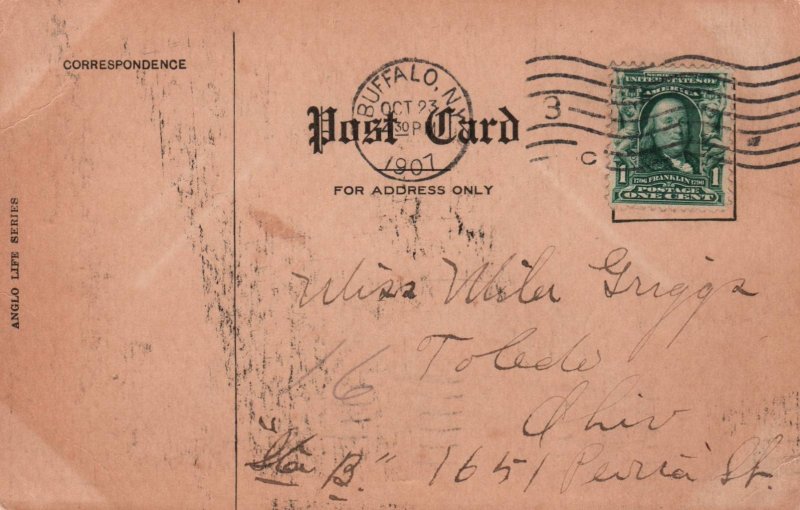 CORRESPONDENCE
ANGLO LIFE SERIES
Post Card
FOR ADDRESS ONLY
BUFFALO, N.Y.
OCT 23
30 P
1907
3
C
SERIES 1902
UNITED STATES OF
AMERICA
1706 FRANKLIN 1790
1 POSTAGE 1
ONE CENT
Miss Griggs
Toledo
16
Ohio
Sta B." 1651 St.